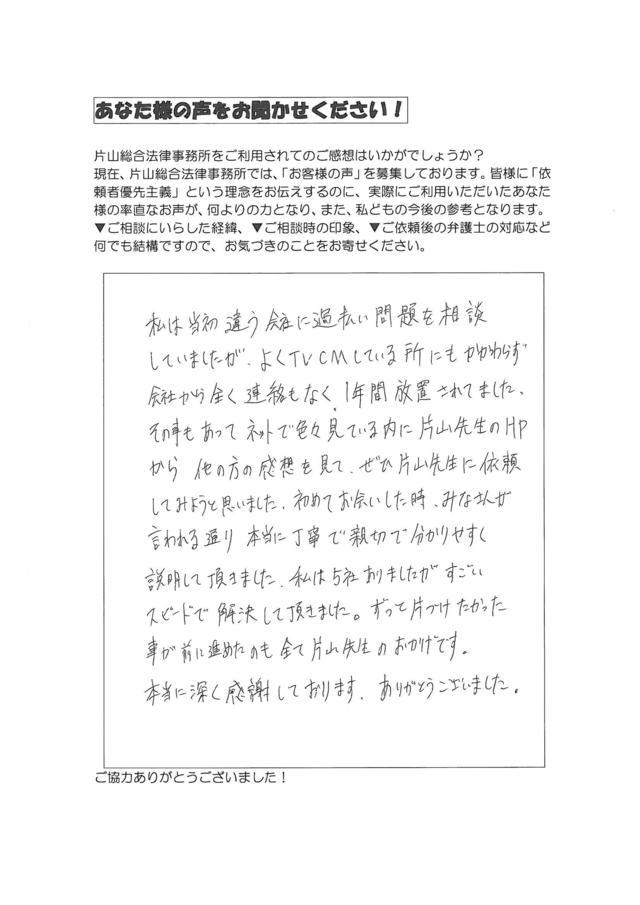 あなた様の声をお聞かせください！
片山総合法律事務所をご利用されてのご感想はいかがでしょうか？
現在、片山総合法律事務所では、「お客様の声」を募集しております。皆様に「依
頼者優先主義」という理念をお伝えするのに、実際にご利用いただいたあなた
様の率直なお声が、何よりの力となり、また、私どもの今後の参考となります。
▼ご相談にいらした経緯、▼ご相談時の印象、▼ご依頼後の弁護士の対応など
何でも結構ですので、お気づきのことをお寄せください。
私は当初違う会社に過払い問題を相談
していましたが、よくTVCMしている所にもかかわらず
会社から全く連絡もなく、1年間放置されてました。
その事もあってネットで色々見ている内に片山先生のHP
から他の方の感想を見て、ぜひ片山先生に依頼
してみようと思いました。初めてお会いした時、みなさんが
言われる通り本当に丁寧で親切で分かりやすく
説明して頂きました。私は5社ありましたがすごい
スピードで解決して頂きました。ずっと片づけたかった
事が前に進めたのも全て片山先生のおかげです。
本当に深く感謝しております。ありがとうございました。
ご協力ありがとうございました！